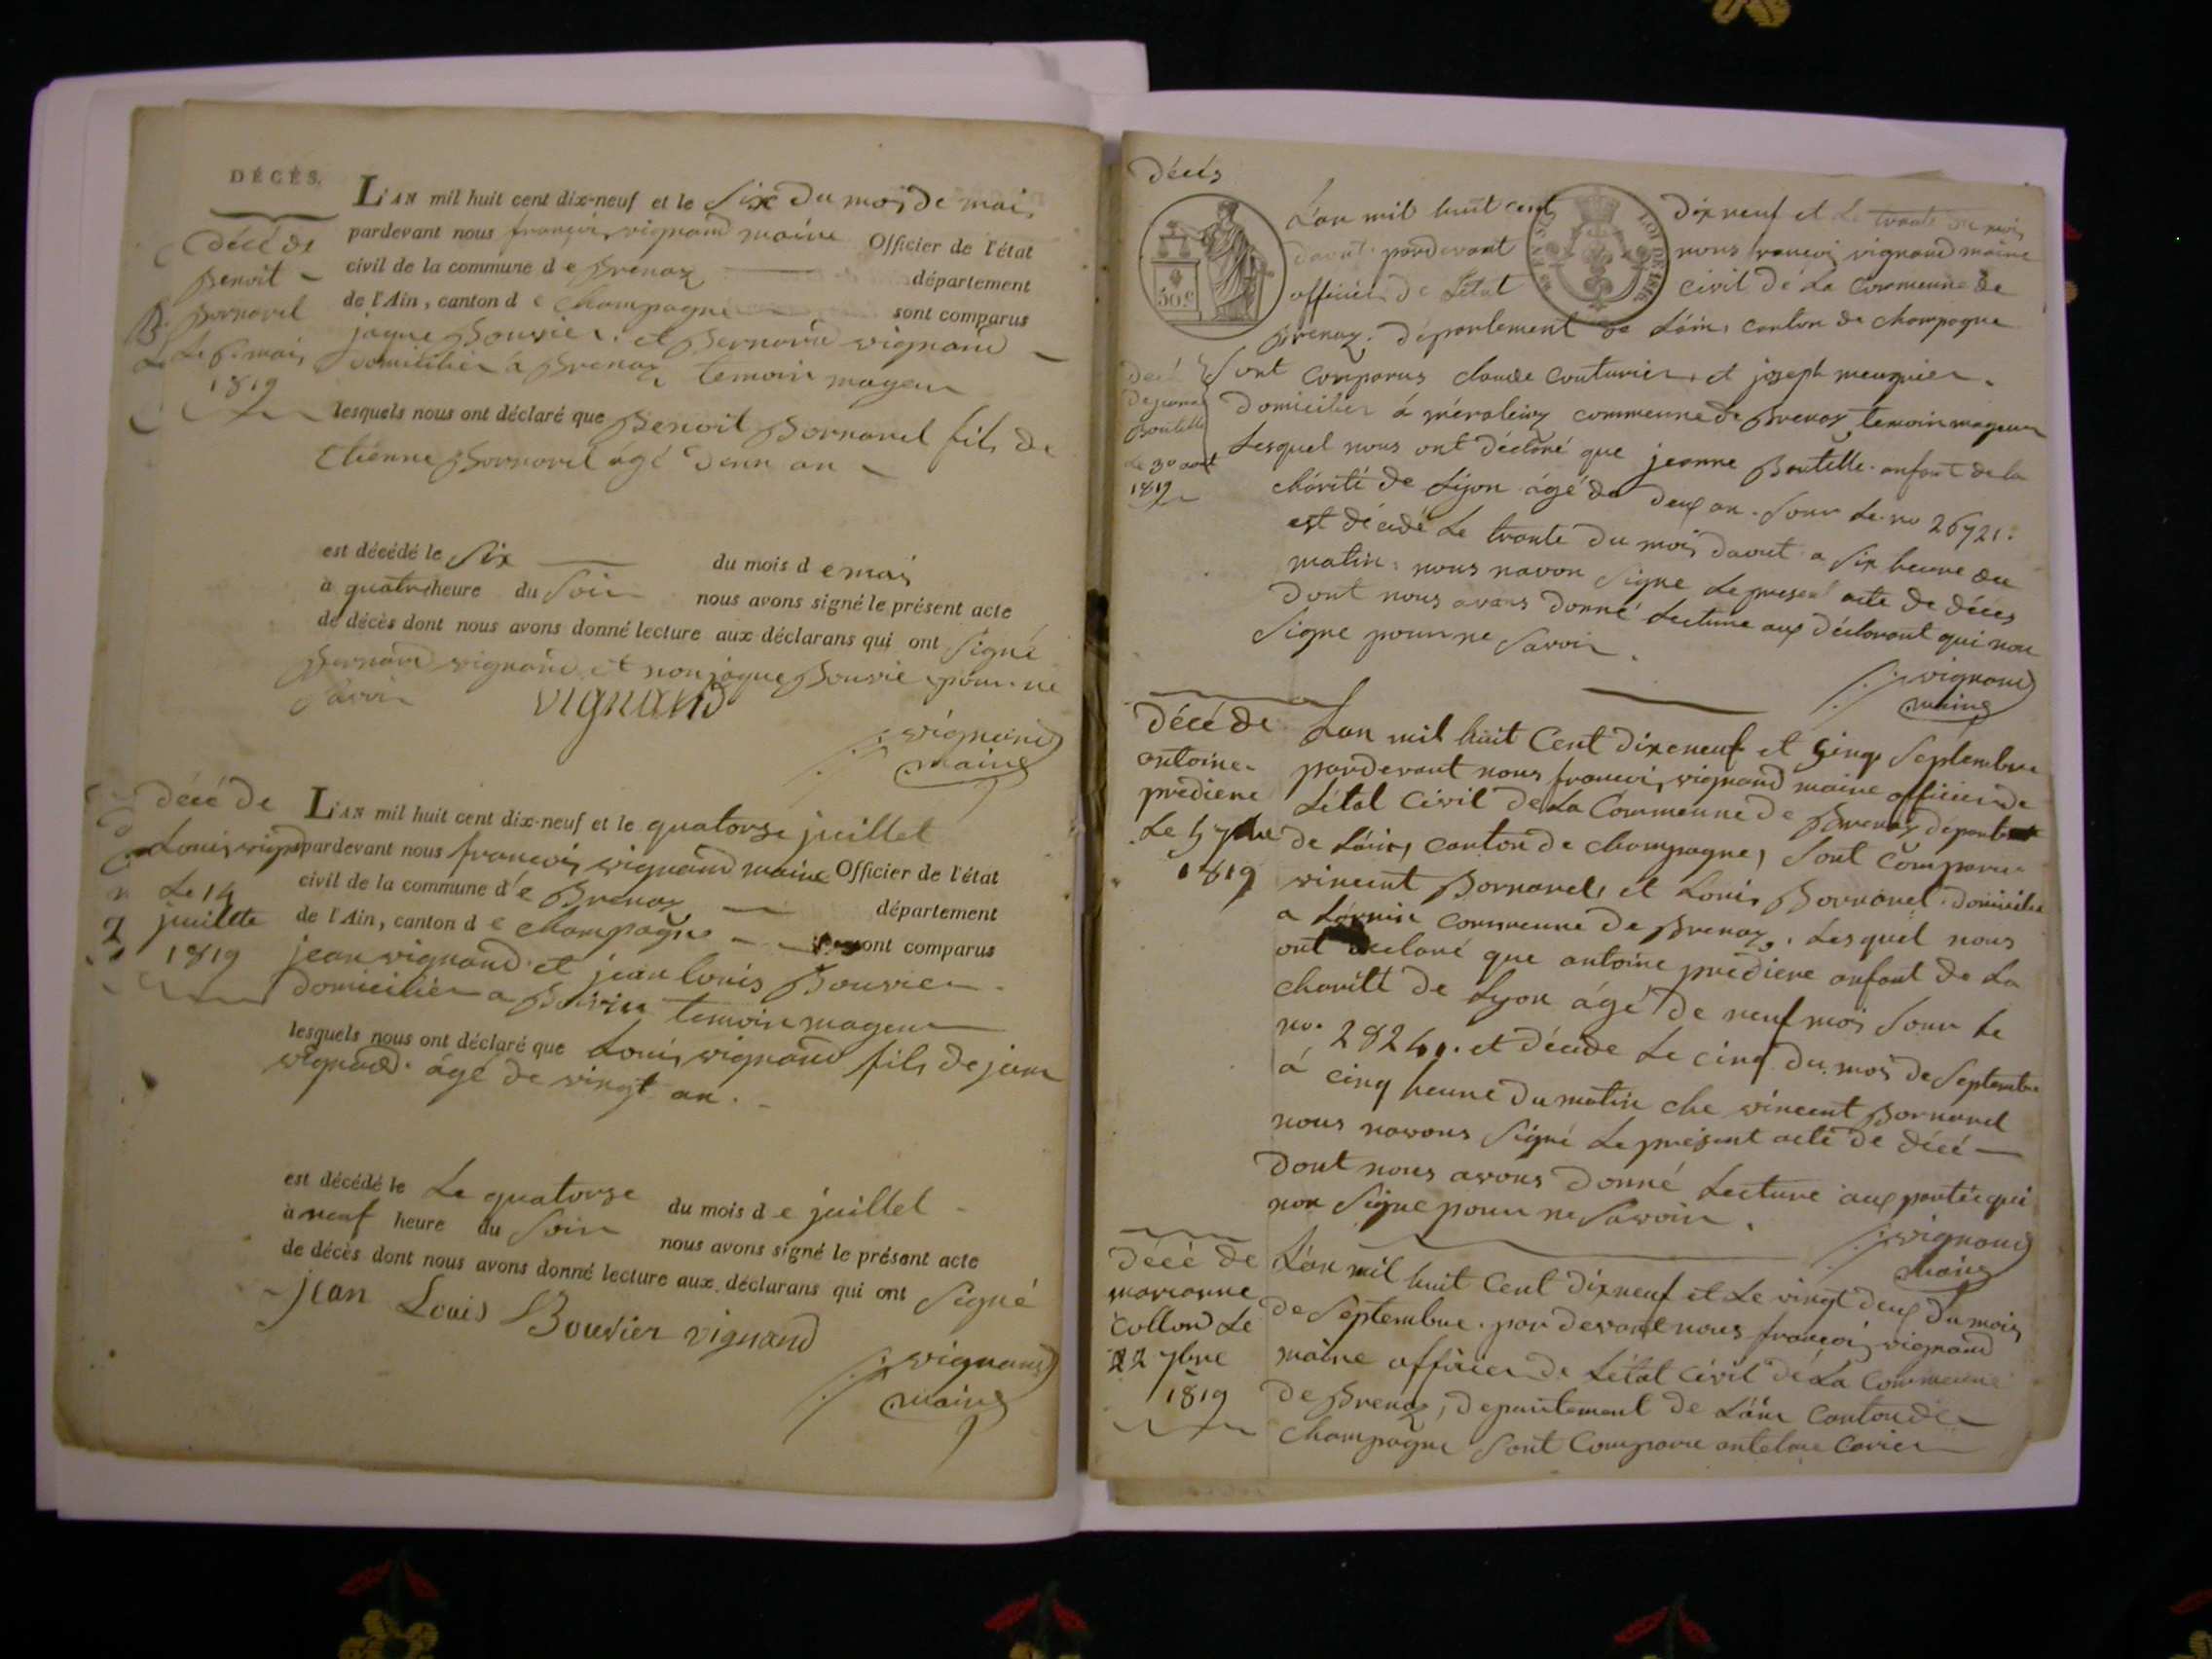 DÉCÈS.
décé de
Benoit
Bornarel
Le 6 mai
1819
L'AN mil huit cent dix-neuf et le Six du mois de mai
pardevant nous françois vignand maire Officier de l'état
civil de la commune d e Brenaz département
de l'Ain, canton d e Champagne sont comparus
jaque Bouvier et Bernard vignand
domicilier à Brenaz temoin mageur
lesquels nous ont déclaré que Benoit Bornarel fils de
Etiénne Bornarel agé d'enn an
est décédé le Six du mois d e mai
à quatre heure du Soir nous avons signé le présent acte
de décès dont nous avons donné lecture aux déclarans qui ont Signé
Bernard vignand et non jaque Bouvie pour ne
Savoir
vignand
vignand
maire
décé de
Louis vignd
Le 14
juillette
1819
L'AN mil huit cent dix-neuf et le quatorse juillet
pardevant nous françois vignand maire Officier de l'état
civil de la commune d e Brenaz département
de l'Ain, canton d e Champagne sont comparus
jean vignand et jean louis Bouvier
domicilier a temoin mageur
lesquels nous ont déclaré que Louis vignand fils de jean
vignand. âgé de vingt an.
est décédé le Le quatorse du mois d e juillet
à neuf heure du Soir nous avons signé le présent acte
de décès dont nous avons donné lecture aux déclarans qui ont Signé
jean Louis Bouvier vignand
vignand
maire
décés
50 c
LOI DE 1816
Décé
de jeanne
Boutelle
Le 30 aout
1819
L'an mil huit cent dix neuf et Le trante du mois
daout pardevant nous francois vignand maire
officier de Létat civil de La Commune de
Brenaz. département de Láin, canton de champagne
Sont comparus claude couturier, et joseph meugnier.
domicilier á méraléaz commeune de Brenaz temoin mageur
Lesquel nous ont déclaré que jeanne Boutelle. anfant de la
chárité de Lÿon âgé de deux an. Sour Le no 26721.
est décédé Le trante du mois daout a Six heure du
matin. nous navon Signe Le presant acte de déces
dont nous avons donné Lecture aux déclarant qui non
Signe pour ne Savoir.
vignand
maire
décé de
antoine
prediere
Le 5 7bre
1819
Lan mil huit Cent dixeneuf et Cinq Septembre
pardevant nous francois vignand maire officier de
Létat Civil de La Commeune de Brenaz départemt
de Láin, canton de champagne, Sont comparu
vincent Bornarel, et Louis Bornarel. domicilié
a commeune de Brenaz, Lesquel nous
ont déclaré que antoine prediere anfant de La
charité de Lyon ágé de neuf mois Sour Le
no. et décéde Le cinq du mois de Septembre
à cinq heure du matin che vincent Bornarel
nous navons Signé Le présant acte de décé
dont nous avons donné Lecture aux partie qui
non Signe pour ne Savoir.
vignand
maire
décé de
marianne
Collond Le
22 7bre
1819
L'an mil huit Cent dixneuf et Le vingt deux du mois
de Septembre. par devant nous françois vignand
maire officier de Létat Civil de La Commeune
de Brenaz, departement de Láin Canton de
Champagne Sont Comparu antelme Carier